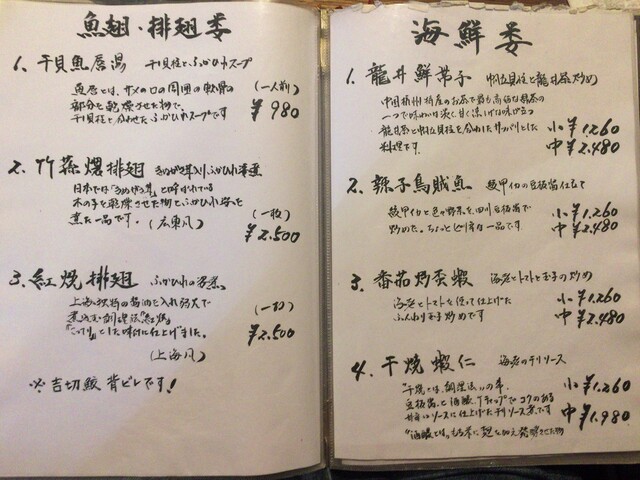 魚翅・排翅类
1、干貝魚唇湯 干貝柱とふかひれスープ
魚唇とは、サメの口の周囲の軟骨の
(一人前)
部分を乾燥させた物で、
¥980
干貝柱と合わせたふかひれスープです
2、竹蓀 排翅 きぬがさ茸入りふかひれ
日本では「きぬがさ茸」と呼ばれている
木の子を乾燥させた物とふかひれ姿を
煮た一品です。(広東風)
(一枚)
¥2.500
3、紅焼排翅 ふかひれの姿煮
上海独特の醤油を入れ弱火で
(一切)
煮込む調理法「紅焼」
「こってり」とした味付に仕上げました。
¥2.500
(上海風)
※吉切鮫 背ビレです!
海鮮类
1、龍井鮮帯子 帆立貝柱と龍井茶炒め
中国杭州特産のお茶で最も高級な緑茶の
一つで味わいは淡く甘く
龍井茶と帆立貝柱を合わせたサッパリとした
料理です。
小¥1.260
中¥2.480
2、辣子烏賊魚 紋甲イカの豆板醤仕立て
紋甲イカと色々野菜を四川豆板醤で
炒めた。ちょっとピリ辛な一品です
小¥1.260
中¥2.480
3、番茄炒蛋蝦 海老とトマトと玉子の炒め
海老とトマトを使って仕上げた
ふんわり玉子炒めです
小¥1.260
中¥2.480
4、干焼蝦仁 海老のチリソース
"干焼とは、調理法"の事。
豆板醤、と酒醸、ケチャップでコクのある
甘辛いソースに仕上げたチリソース煮です
小¥1.260
中¥1.980
"酒醸とは。もち米に麹を加え発酵させた物